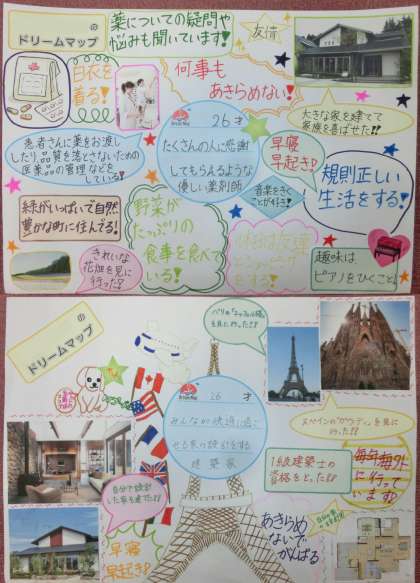 の
ドリームマップ
薬についての疑問や
悩みも聞いています!
友情
白衣を
着る!
何事も
あきらめない!
大きな家を建てて
家族を喜ばせた!!
26才
たくさんの人に感謝
してもらえるような
優しい薬剤師
患者さんに薬をお渡し
したり、品質を落とさないための
医薬品の管理などを
している!
早寝
早起き!
音楽をきく
ことが好き!
規則正しい
生活をする!
緑がいっぱいで自然
豊かな町に住んでる!
野菜が
たっぷりの
食事を食べて
いる!
休日は友達
をする!
趣味は
ピアノをひくこと!
きれいな
花畑を見に
行った!
の
ドリームマップ
パリの「エッフェル塔」
を見に行った!!
26才
みんなが快適に過ご
せる家の設計をする
建築家
スペインのガウディを見に
行った!!
1級建築士の
資格をとった!!
毎年海外
に行って
います!
自分で設計
した家を建てた!!
早寝
早起き!
あきらめ
ないで
がんばる